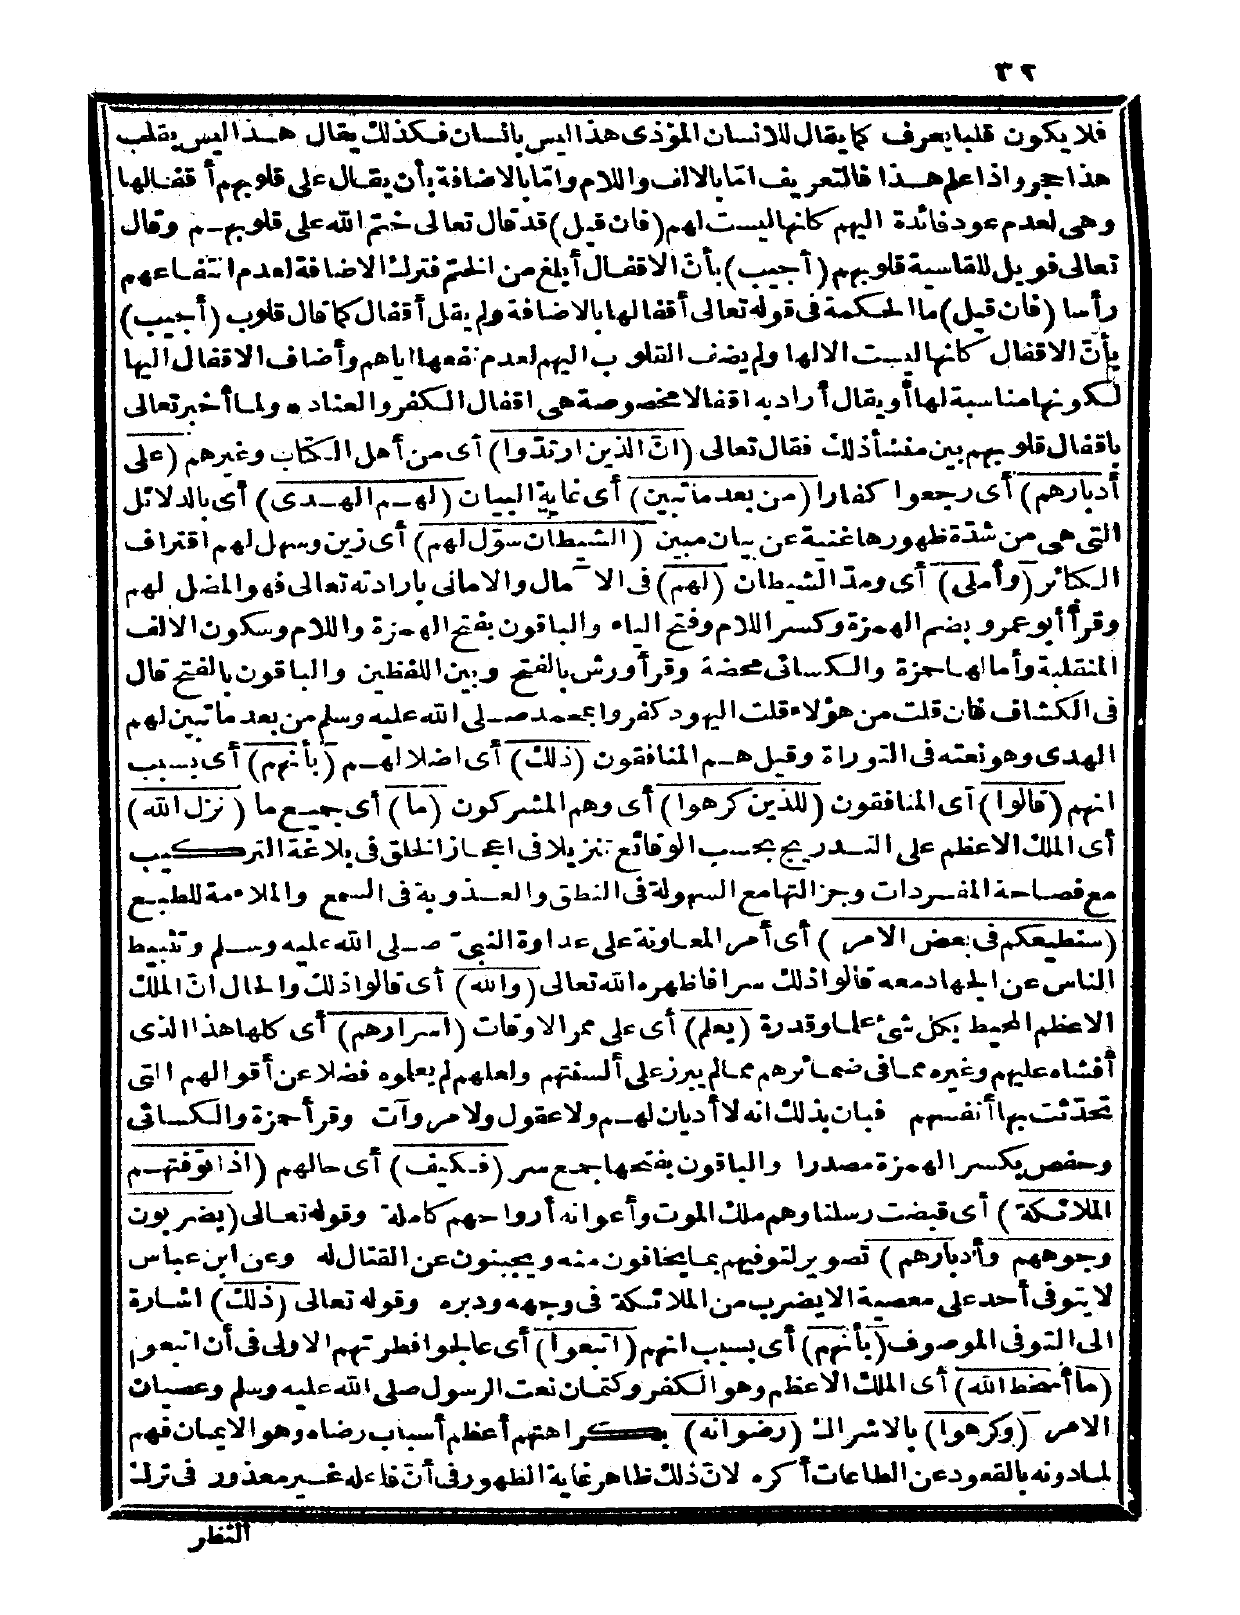 ٣٢
فلا يكون قلبا يعرف كما يقال للانسان المؤذى هذا ليس بانسان فكذلك يقال هذا ليس بقلب
هذا حجر واذا علم هذا فالتعريف امّا بالالف واللام وامّا بالاضافة بأن يقال على قلوبهم أقفالها
وهى لعدم عود فائدة اليهم كانها ليست لهم (فان قيل) قد قال تعالى ختم الله على قلوبهم وقال
تعالى فويل للقاسية قلوبهم (أجيب) بأنّ الاقفال أبلغ من الختم فترك الاضافة لعدم انتفاعهم
رأسا (فان قيل) ما الحكمة فى قوله تعالى أقفالها بالاضافة ولم يقل أقفال كما قال قلوب (أجيب)
بأنّ الاقفال كانها ليست الا لها ولم يضف القلوب اليهم لعدم نفعها اياهم وأضاف الاقفال اليها
لكونها مناسبة لها أو يقال أراد به اقفالا مخصوصة هى اقفال الكفر والعناد • ولما أخبر تعالى
باقفال قلوبهم بين منشأ ذلك فقال تعالى (انّ الذين ارتدّوا) أى من أهل الكتاب وغيرهم (على
أدبارهم) أى رجعوا كفارا (من بعد ما تبين) أى غاية البيان (لهم الهدى) أى بالدلائل
التى هى من شدّة ظهورها غنية عن بيان مبين (الشيطان سوّل لهم) أى زين وسهل لهم اقتراف
الكبائر (وأملى) أى ومدّ الشيطان (لهم) فى الآمال والامانى بارادته تعالى فهو المضل لهم
وقرأ أبو عمرو بضم الهمزة وكسر اللام وفتح الياء والباقون بفتح الهمزة واللام وسكون الالف
المنقلبة وأمالها حمزة والكسائى محضة وقرأ ورش بالفتح وبين اللفظين والباقون بالفتح قال
فى الكشاف فان قلت من هؤلاء قلت اليهود كفروا بمحمد صلى الله عليه وسلم من بعد ما تبين لهم
الهدى وهو نعته فى التوراة وقيل هم المنافقون (ذلك) أى اضلالهم (بأنهم) أى بسبب
انهم (قالوا) أى المنافقون (للذين كرهوا) أى وهم المشركون (ما) أى جميع ما (نزل الله)
أى الملك الاعظم على التدريج بحسب الوقائع تنزيلا فى اعجاز الخلق فى بلاغة التركيب
مع فصاحة المفردات وجزالتها مع السهولة فى النطق والعذوبة فى السمع والملاءمة للطبع
(سنطيعكم فى بعض الامر) أى أمر المعاونة على عداوة النبىّ صلى الله عليه وسلم وتثبيط
الناس عن الجهاد معه قالوا ذلك سرا فاظهره الله تعالى (والله) أى قالوا ذلك والحال انّ الملك
الاعظم المحيط بكل شئ علما وقدرة (يعلم) أى على ممر الاوقات (اسرارهم) أى كلها هذا الذى
أفشاه عليهم وغيره مما فى ضمائرهم مما لم يبرز على ألسنتهم ولعلهم لم يعلموه فضلا عن أقوالهم التى
تحدّثت بها أنفسهم فبان بذلك انه لا أديان لهم ولا عقول ولا مروآت وقرأ حمزة والكسائى
وحفص بكسر الهمزة مصدرا والباقون بفتحها جمع سر (فكيف) أى حالهم (اذا توفتهم
الملائكة) أى قبضت رسلنا وهم ملك الموت وأعوانه أرواحهم كاملة وقوله تعالى (يضربون
وجوههم وأدبارهم) تصوير لتوفيهم بما يخافون منه ويجبنون عن القتال له وعن ابن عباس
لا يتوفى أحد على معصية الا يضرب من الملائكة فى وجهه ودبره وقوله تعالى (ذلك) اشارة
الى التوفى الموصوف (بأنهم) أى بسبب انهم (اتبعوا) أى عالجوا فطرتهم الاولى فى أن اتبعوا
(ما أسخط الله) أى الملك الاعظم وهو الكفر وكتمان نعت الرسول صلى الله عليه وسلم وعصيان
الامر (وكرهوا) بالاشراك (رضوانه) بكراهتهم أعظم أسباب رضاه وهو الايمان فهم
لما دونه بالقعود عن الطاعات أكره لانّ ذلك ظاهر غاية الظهور فى أنّ فاعله غير معذور فى ترك
النظر